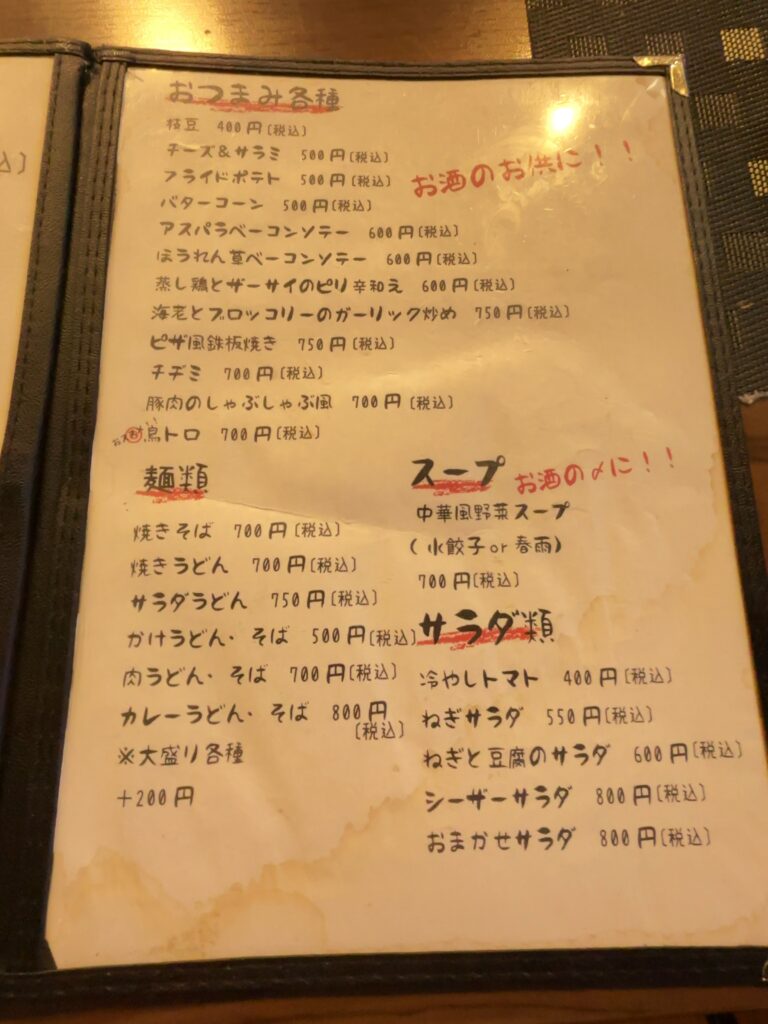 おつまみ各種
枝豆 400円(税込)
チーズ&サラミ 500円(税込)
フライドポテト 500円(税込)
お酒のお供に!!
バターコーン 500円(税込)
アスパラベーコンソテー 600円(税込)
ほうれん草ベーコンソテー 600円(税込)
蒸し鶏とザーサイのピリ辛和え 600円(税込)
海老とブロッコリーのガーリック炒め 750円(税込)
ピザ風鉄板焼き 750円(税込)
チヂミ 700円(税込)
豚肉のしゃぶしゃぶ風 700円(税込)
鳥トロ 700円(税込)
麺類
焼きそば 700円(税込)
焼きうどん 700円(税込)
サラダうどん 750円(税込)
かけうどん・そば 500円(税込)
肉うどん・そば 700円(税込)
カレーうどん・そば 800円
(税込)
※大盛り各種
+200円
スープ
お酒の〆に!!
中華風野菜スープ
(水餃子or春雨)
700円(税込)
サラダ類
冷やしトマト 400円(税込)
ねぎサラダ 550円(税込)
ねぎと豆腐のサラダ 600円(税込)
シーザーサラダ 800円(税込)
おまかせサラダ 800円(税込)